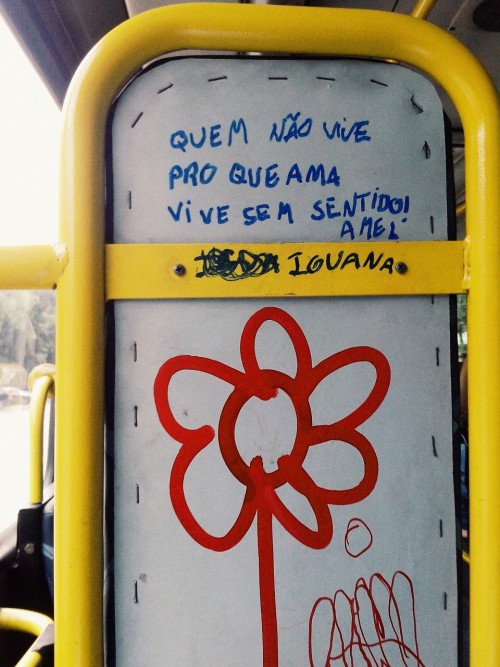 QUEM NÃO VIVE
PRO QUE AMA
VIVE SEM SENTIDO!
AME!
IGUANA